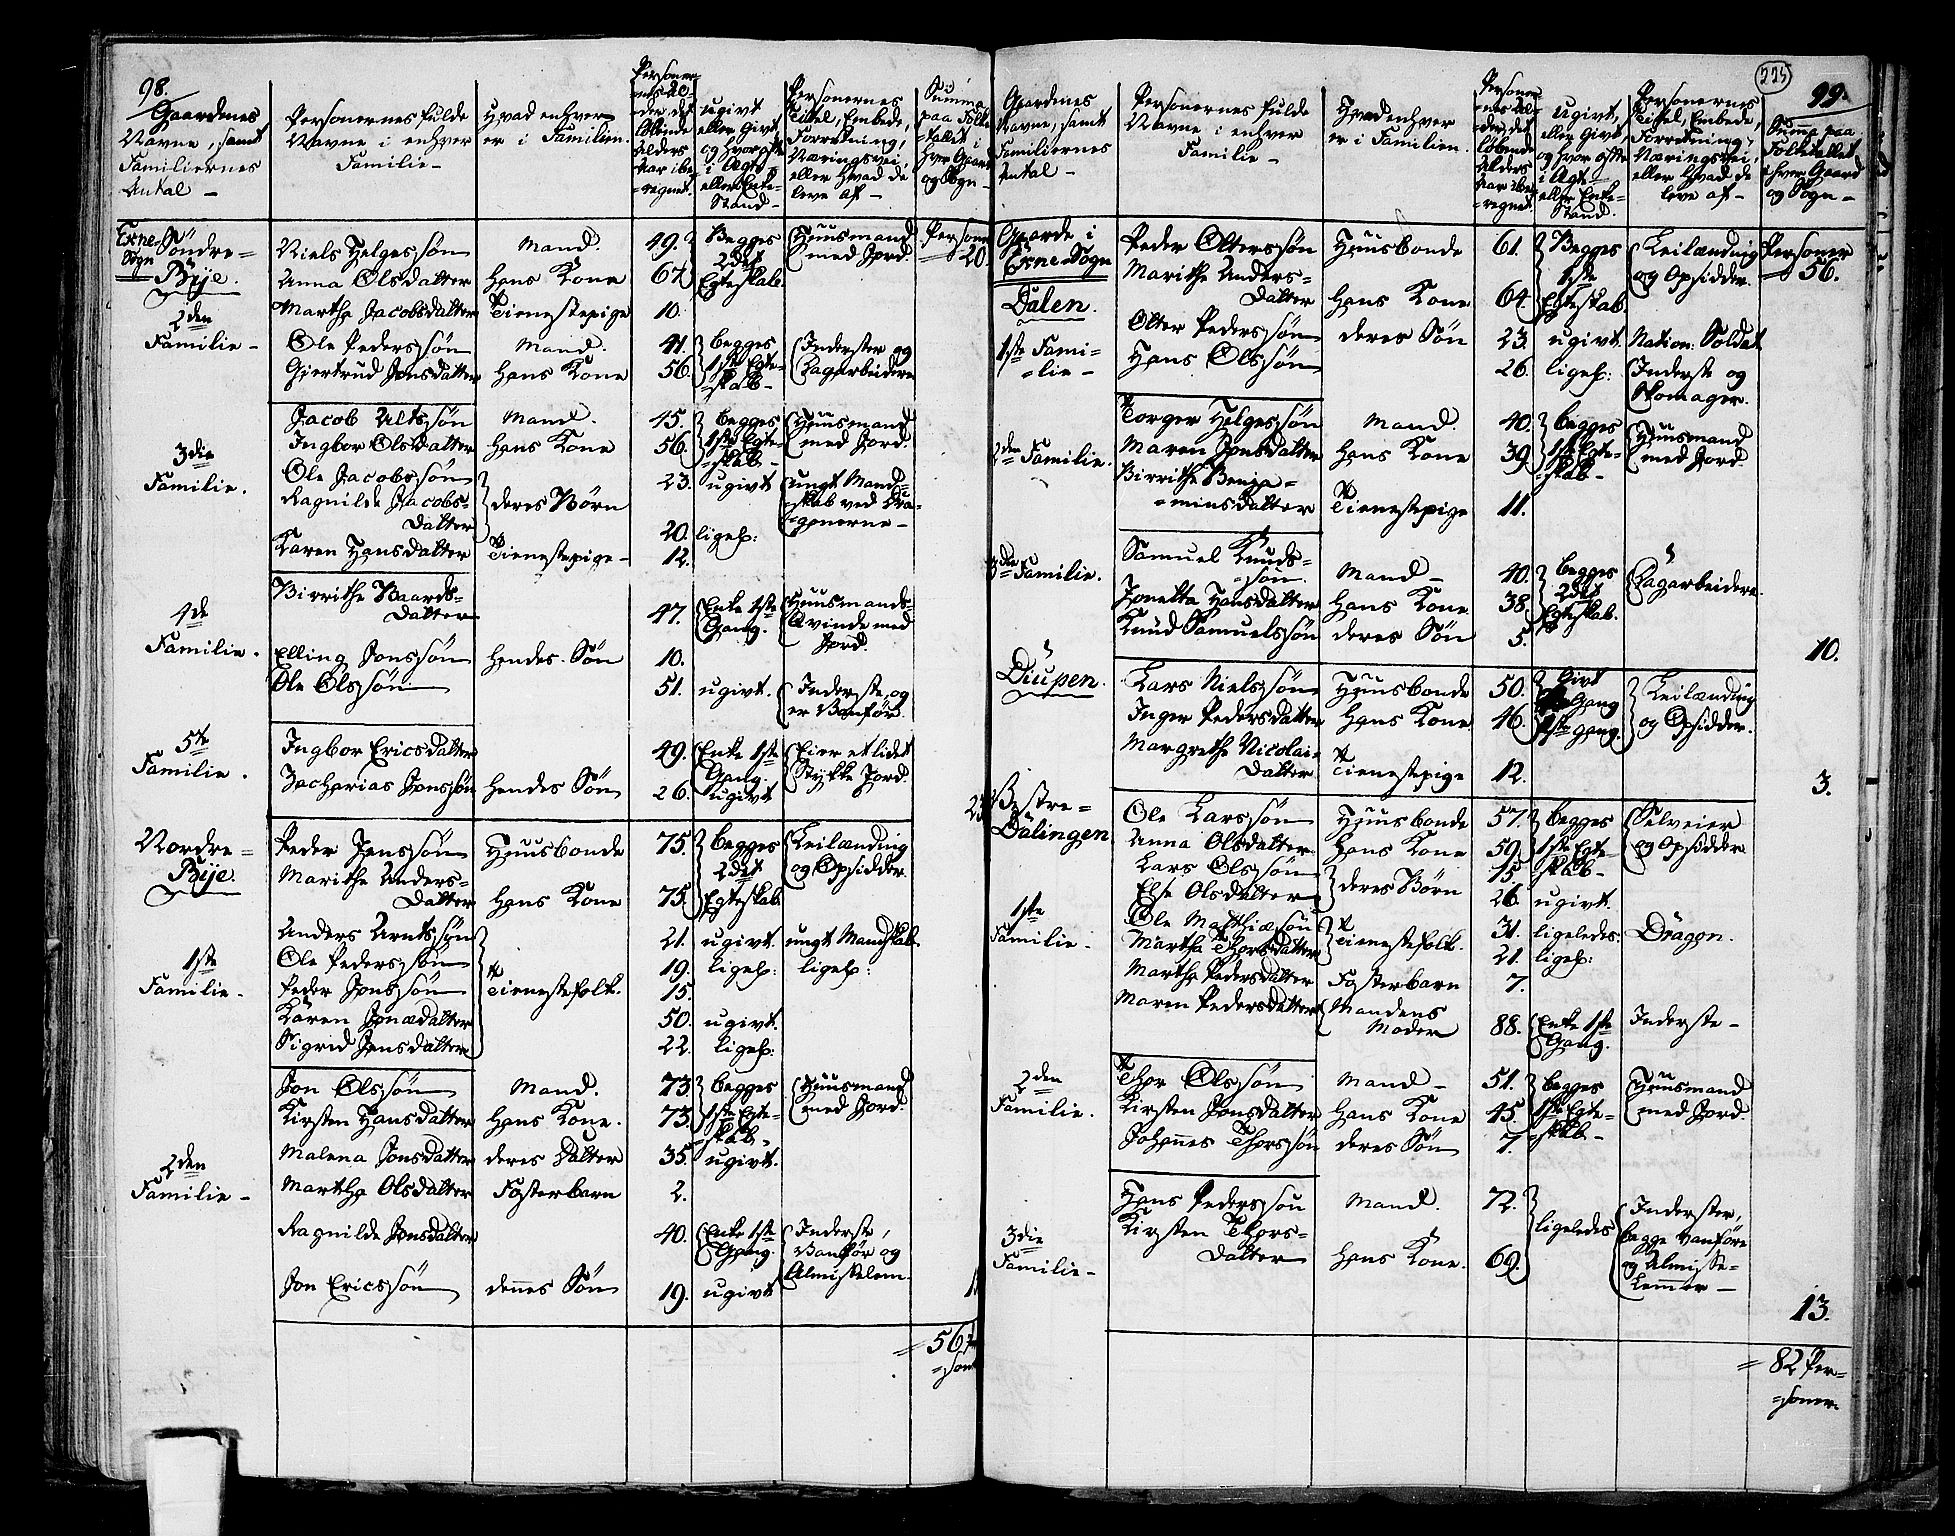 98.
Gaardenes Navne, samt Familiernes Antal –
Personernes fulde Navne i enhver Familie –
Hvad enhver er i Familien.
Personernes Alder, det løbende Alders Aar iberegnet.
ugivt eller givt, og hvor ofte i Ægte- eller Enke-Stand –
Personernes Titel, Embede, Forretning, Næringsvei, eller hvad de leve af –
Summa paa Folketallet i hver Gaard og Sogn –
Exne Sogn Söndre= Bÿe. Niels Helgessön Mand. 49. Begges 2det Egteskab. Huusmand med Jord. Personer 20.
Anna Olsdatter hans Kone 67
Martha Jacobsdatter Tienestepige 10.
2den Familie – Ole Pederssön Mand. 41. begges 1ste Egteskab – Inderster og Dagarbeidere
Giertrud Jonsdatter hans Kone 56.
3die Familie. Jacob Altssön Mand. 45. begges 1ste Egteskab – Huusmand med Jord.
Ingbor Olsdatter hans Kone 56.
Ole Jacobssön deres Börn 23. ugivt ungt Mandskab ved Dragonerne –
Ragnilde Jacobsdatter 20. ligel:
Karen Hansdatter Tienestepige – 12.
4de Familie. Birrithe Baardsdatter 47. Enke 1ste Gang. Huusmands-Qvinde med Jord.
Elling Jonssön hendes Sön 10.
Ole Olssön 51. ugivt. Inderste, og er Vanför.
5te Familie. Ingbor Ericsdatter 49. Enke 1ste Gang. Eier et lidet Stykke Jord.
Zacharias Jonssön hendes Sön 26. ugivt 23
Nordre= Bÿe. Peder Jenssön Huusbonde 75. begges 2det Egteskab Leilænding og Opsidder.
Marithe Andersdatter hans Kone 75.
1ste Familie – Anders Arntssön Tienestefolk. 21. ugivt. ungt Mandskab.
Ole Pederssön 19. ligel: ligel:
Peder Jonssön 15.
Karen Jonædatter 50. ugivt.
Sigrid Jensdatter 22. ligel:
2den Familie – Jon Olssön Mand. 73. begges 1ste Egteskab – Huusmand med Jord.
Kirsten Hansdatter hans Kone. 73.
Malena Jonsdatter deres Datter 35. ugivt.
Martha Olsdatter Fosterbarn 2.
Ragnilde Jonsdatter 40. Enke 1ste Gang. Inderste, Vanför og Almisselem.
Jon Ericssön dennes Sön 19. ugivt
= 56
=soner
225
99.
Gaardenes Navne, samt Familiernes Antal –
Personernes fulde Navne i enhver Familie –
Hvad enhver er i Familien.
Personernes Alder, det løbende Alders Aar iberegnet.
ugivt, eller givt, og hvor ofte i Ægte- eller Enke-Stand.
Personernes Titel, Embede, Forretning, Næringsvei, eller hvad de leve af –
Suma paa Folketallet i hver Gaard og Sogn –
Gaarde i Exne Sogn Dalen. Peder Olterssön Huusbonde 61. Begges 1ste Egteskab. Leilænding og Opsidder. Personer 56.
Marithe Andersdatter hans Kone 64
1ste Familie – Olter Pederssön deres Sön 23. ugivt. Nation: Soldat
Hans Olssön 26. ligel: Inderste og Skomager.
2den Familie. Torger Helgessön Mand. 40. begges 1ste Egteskab – Huusmand med Jord
Maren Jonsdatter hans Kone 39
Birrithe Benja=minsdatter Tienestepige 11.
3die Familie. Samuel Knuds=sön. Mand – 40. begges 2det Egteskab. Dagarbeidere.
Jonetta Hansdatter hans Kone 38.
Knud Samuelssön deres Sön 5. 10.
Diupen. Lars Nielssön Huusbonde 50. Givt Gang 1ste gang. Leilænding og Opsidder.
Inger Pedersdatter hans Kone 46.
Margrethe Nicolaidatter Tienestepige 12. 3.
Vestre= Dälingen Ole Larssön Huusbonde 57. begges 1ste Egteskab – Selveier og Opsidder
Anna Olsdatter hans Kone 59.
Lars Olssön deres Börn 15
1ste Familie. Else Olsdatter 26 ugivt.
Ole Mathiæsön Tienestefolk. 31. ligeledes: Dragon.
Martha Thorsdatter 21. ligel:
Martha Pedersdatter Fosterbarn 7.
Maren Pedersdatter Mandens Moder 88. Enke 1ste Gang. Inderste –
2den Familie. Thor Olssön Mand – 51. begges 1ste Egteskab – Huusmand med Jord.
Kirsten Jonsdatter hans Kone 45.
Johannes Thorssön deres Sön 7.
3die Familie – Hans Pederssön Mand. 72. ligeledes Inderster, begge Vanföre og Almisse=Lemmer –
Kirsten Thorsdatter hans Kone. 69. 13.
= 82 Per=
=soner.